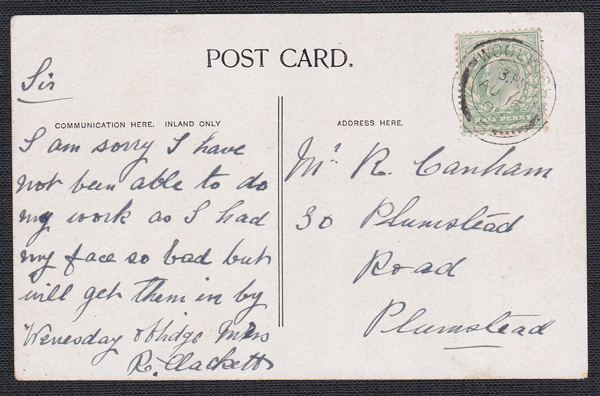 POST CARD.
Sir
COMMUNICATION HERE. INLAND ONLY
I am sorry I have
not been able to do
my work as I had
my face so bad but
will get them in by
Wenesday oblidge Mrs
R. Clackett
ADDRESS HERE.
Mr R. Canham
30 Plumstead
Road
Plumstead
PENNY